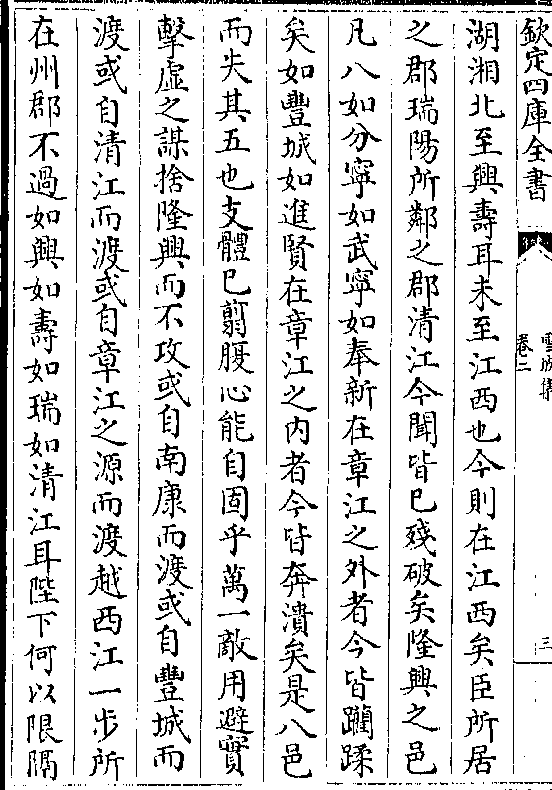 欽定四庫全書
雪牕集
卷二
三
湖湘北至興壽耳未至江西也今則在江西矣臣所居
之郡瑞陽所鄰之郡清江今聞皆已殘破矣隆興之邑
凡八如分寧如武寧如奉新在章江之外者今皆躪蹂
矣如豐城如進賢在章江之内者今皆奔潰矣是八邑
而失其五也支體已翦腹心能自固乎萬一敵用避實
擊虛之謀捨隆興而不攻或自南康而渡或自豐城而
渡或自清江而渡或自章江之源而渡越西江一步所
在州郡不過如興如壽如瑞如清江耳陛下何以限隔